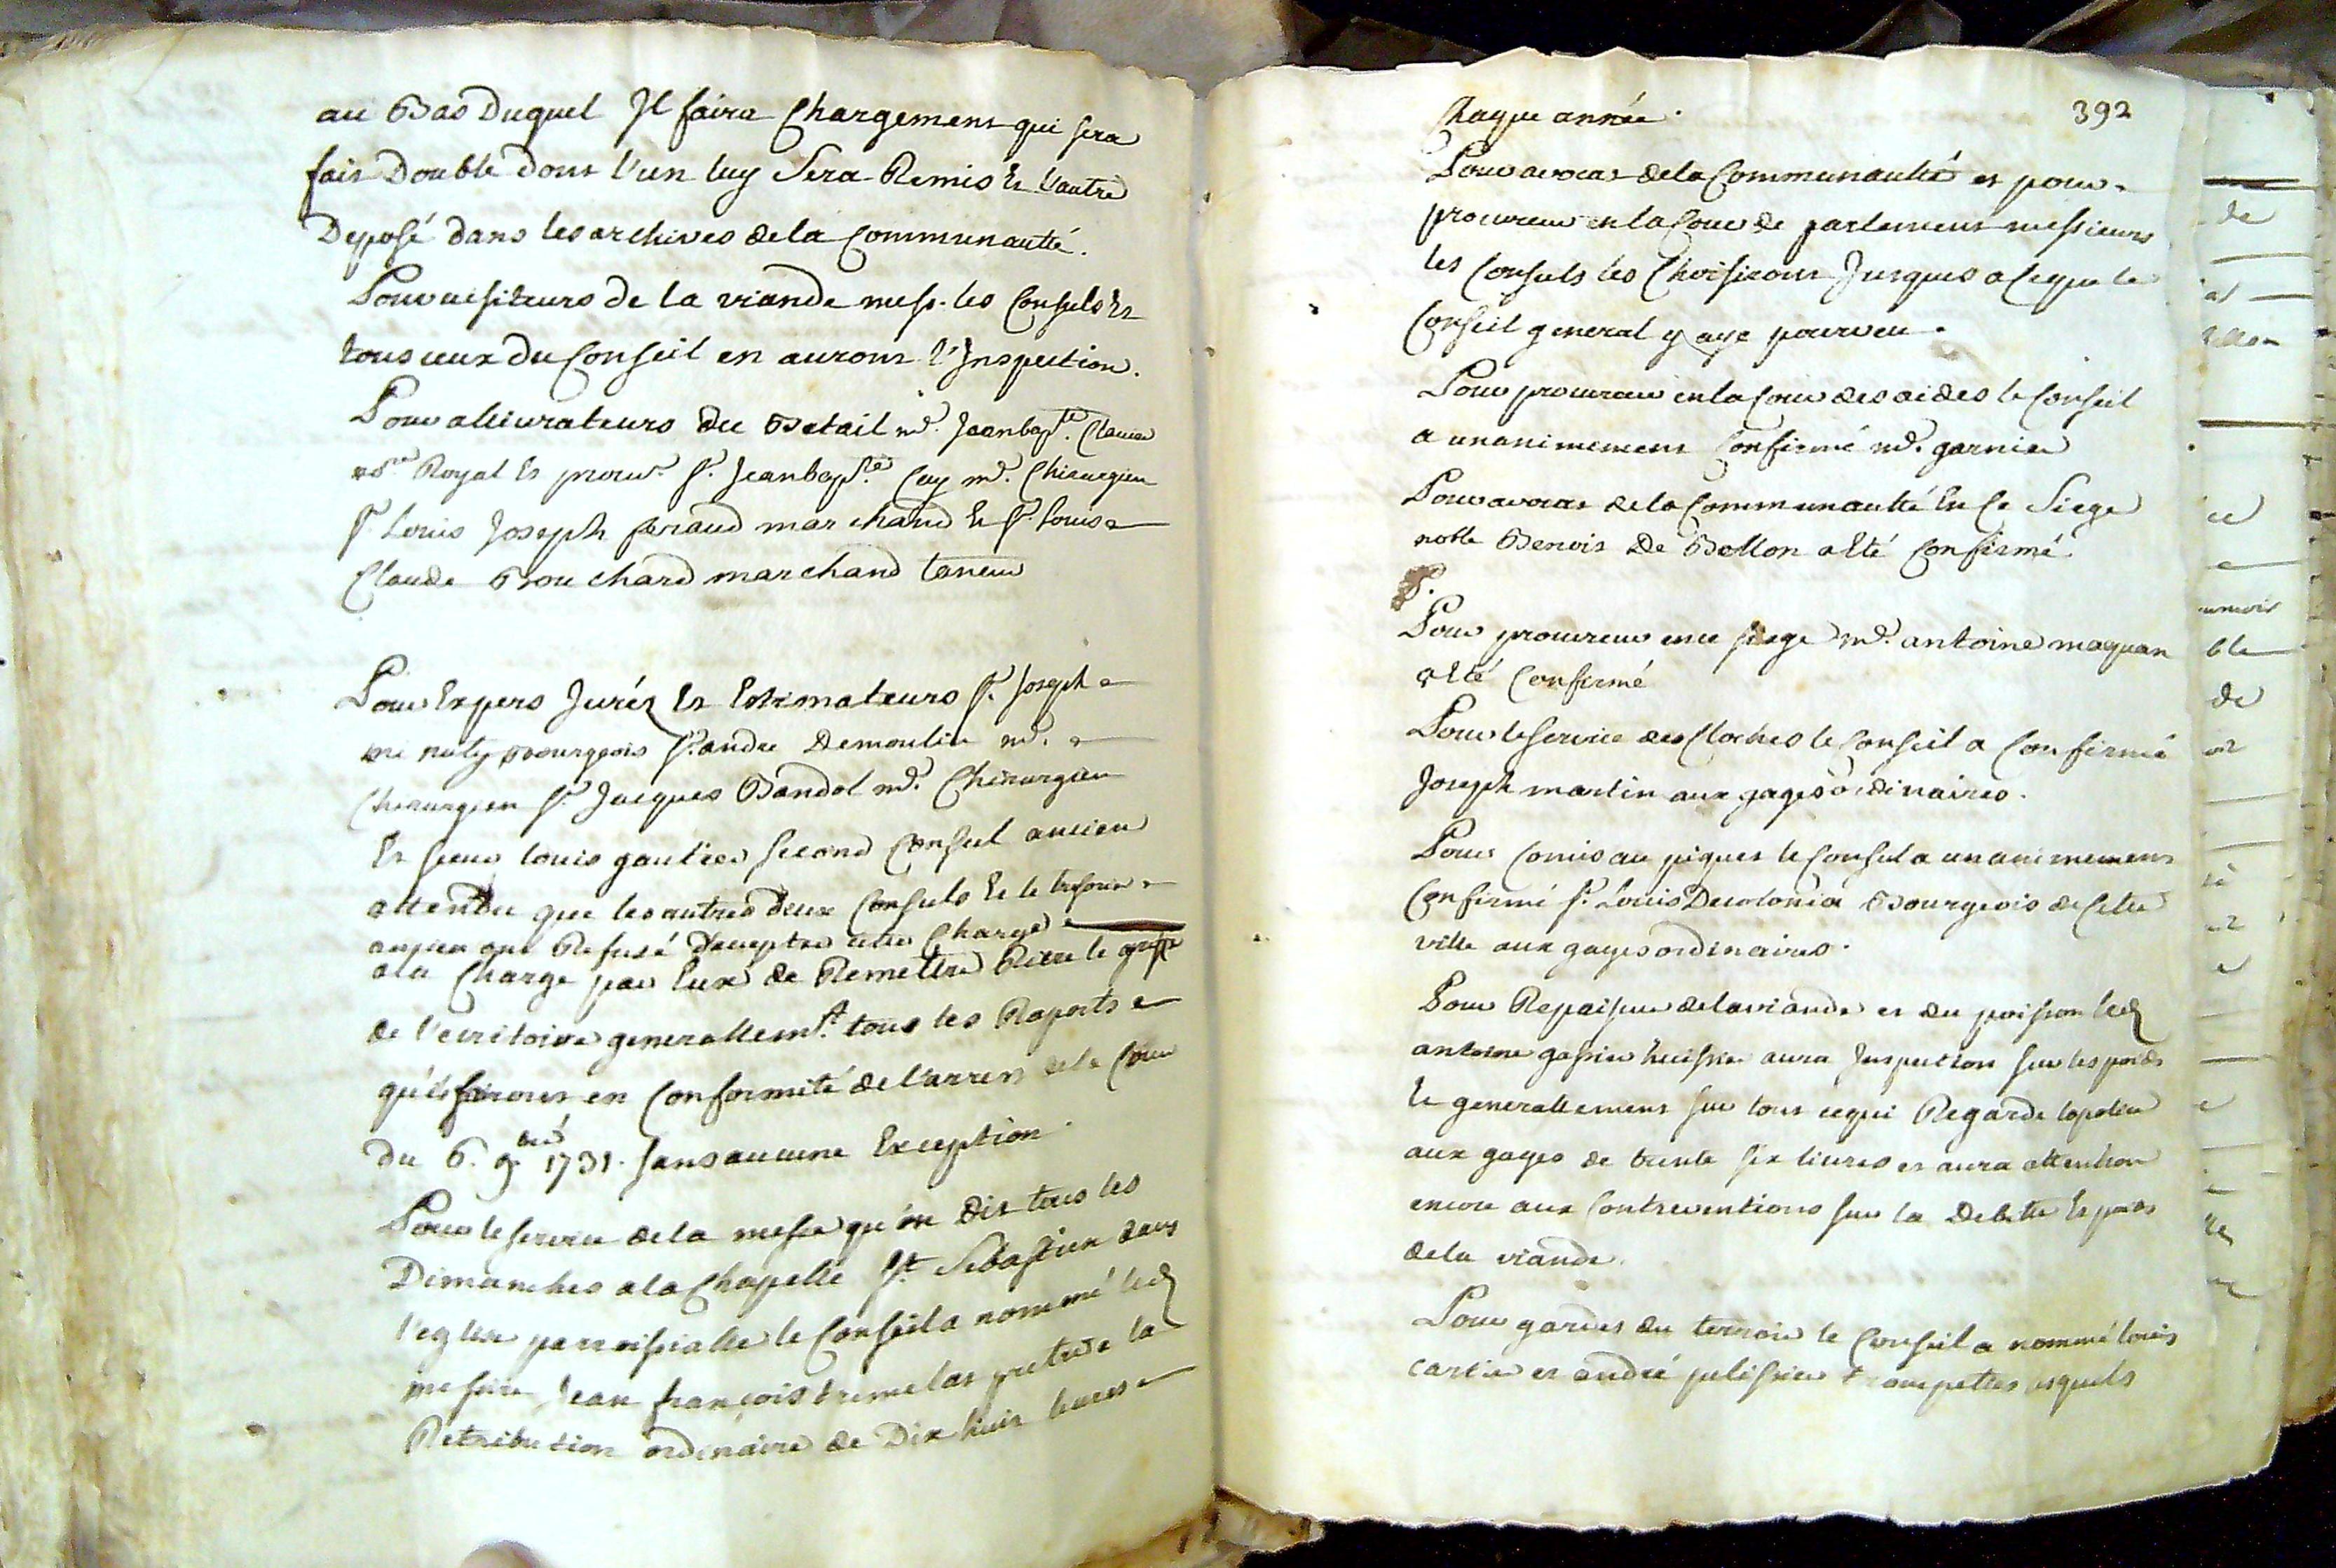 au Bas Duquel Il faira Chargement qui sera
fait Double dont l'un luy Sera Remis Et l'autre
Deposé dans les archives de la Communauté.
Pour visiteurs de la viande mess. les Consuls Et
tous ceux du Conseil en auront l'Inspection.
Pour alivrateurs du Betail me. Jeanbapte.
nore Royal Et procur. sr. Jeanbapte. Cay me. Chirurgien
sr. Louis Joseph feraud marchand Et sr. Louis
Claude Bouchard marchand taneur
Pour Expers Jurés Et Estimateurs sr. Joseph
minuty Bourgeois sr. andre Demoulin me.
Chirurgien sr. Jacques Bandol me. Chirurgien
Et sieur louis gautier second Consul ancien
attendu que les autres deux Consuls Et le tresorier
ancien ont Refusé d'accepter cette Charge
a la Charge par Eux de Remettre Riere le greffe
de l'ecritoire generallemt. tous les Raports
qu'ils fairont en Conformité de l'arrest de la Cour
du 6. 9bre 1731. sans aucune Exception.
Pour le service de la messe qu'on dit tous les
Dimanches a la Chapelle St. Sebastien dans
l'eglise parroissialle le Conseil a nommé led
messire Jean françois tremelat pretre a la
Retribution ordinaire de Dix huit livres
392
Chaque année.
Pour avocat de la Communauté et pour
procureur en la Cour de parlement messieurs
les Consuls les Choisiront Jusques a Ceque le
Conseil general y aye pourveu.
Pour procureur en la Cour des aides le Conseil
a unanimement Confirmé me. garnier
Pour avocat de la Communauté En Ce Siege
noble Benoit De Bollon a Eté Confirmé.
P.
Pour procureur en ce siege me. antoine maquan
a Eté Confirmé
Pour le service des Cloches le Conseil a Confirmé
Joseph martin aux gages ordinaires.
Pour Comis au piquet le Conseil a unanimement
Confirmé sr. Louis Decolonia Bourgeois de Cette
ville aux gages ordinaires.
Pour Repaiseur de la viande et du poisson led
antoine gassier huissier aura Inspection sur les poids
Et generallement sur tout cequi Regarde la police
aux gages de trente six livres et aura attention
encore aux Contreventions sur la Debitte Et poids
de la viande.
Pour gardes du terroir le Conseil a nommé louis
cartier et andré pelissier trompettes lesquels